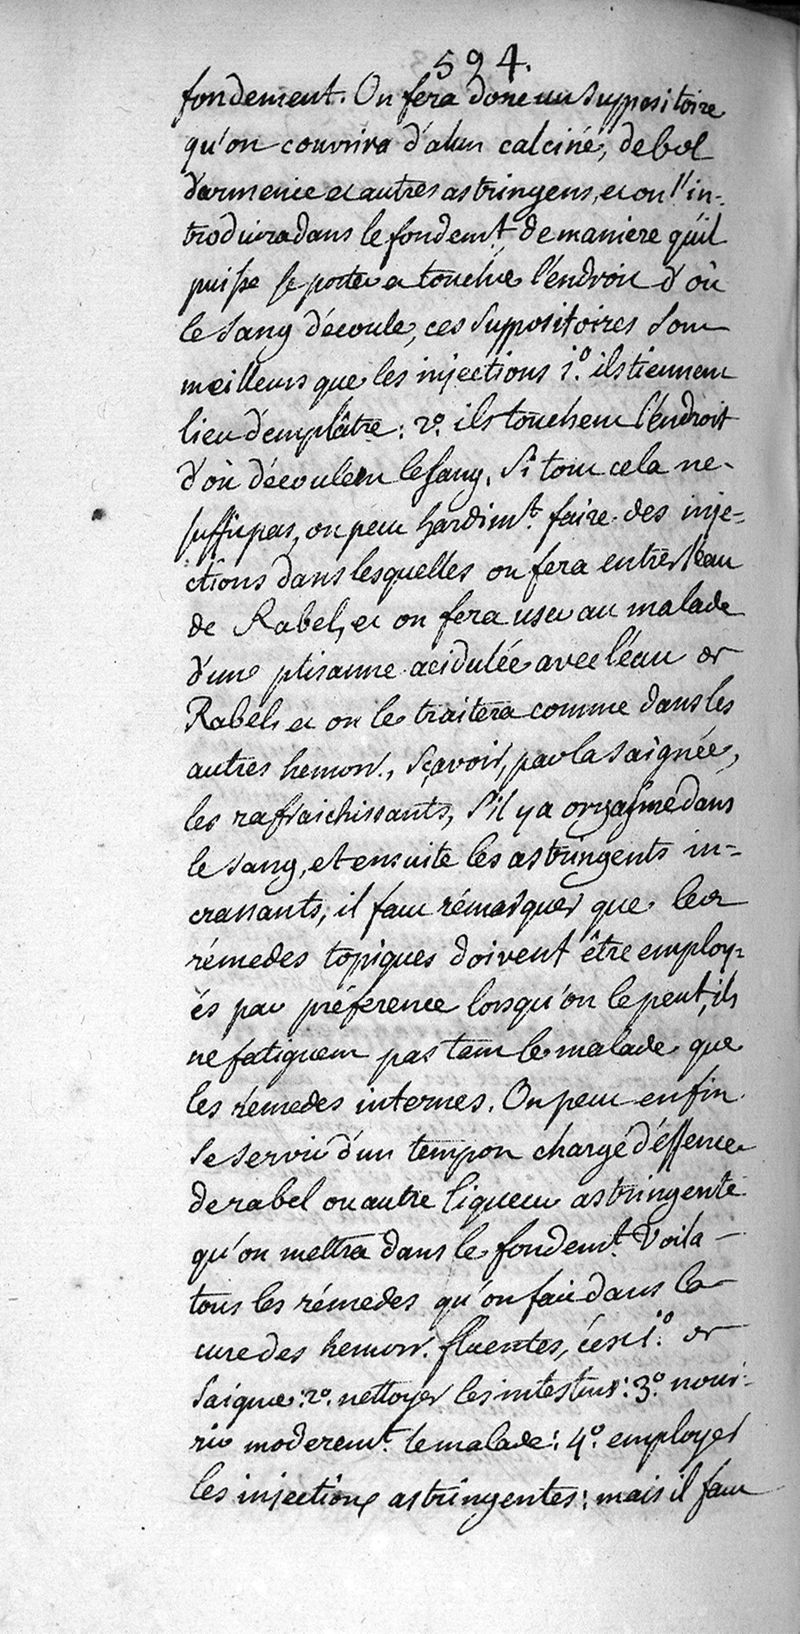 594.
fondement. On fera donc un suppositoire
qu'on couvrira d'alun calciné, de bol
d'armenie et autres astringens, et on l'in-
troduira dans le fondem.t de maniere qu'il
puisse se porter et toucher l'endroit d'où
le sang découle, ces suppositoires sont
meilleurs que les injections 1.° ils tiennent
lieu d'emplâtre : 2.° ils touchent l'endroit
d'où découle le sang. Si tout cela ne-
suffit pas, on peut hardim.t faire des inje=
ctions dans lesquelles on fera entrer l'eau
de Rabel, et on fera user au malade
d'une ptisanne acidulée avec l'eau de
Rabel, et on le traitera comme dans les
autres hemorr., sçavoir, par la saignée,
les rafraichissants, s'il y a orgasme dans
le sang, et ensuite les astringents in=
crassants, il faut rémarquer que les
rémedes topiques doivent être employ=
és par préference lorsqu'on le peut, ils
ne fatiguent pas tant le malade que
les rémedes internes. On peut enfin
se servir d'un tempon chargé d'essence
de rabel ou autre liqueur astringente
qu'on mettra dans le fondem.t Voila
tous les rémedes qu'on fait dans la
cure des hemorr. fluentes, c'est 1.° de
saigner : 2.° nettoyer les intestins : 3.° nour-
rir moderem.t le malade : 4.° employer
les injections astringentes : mais il faut